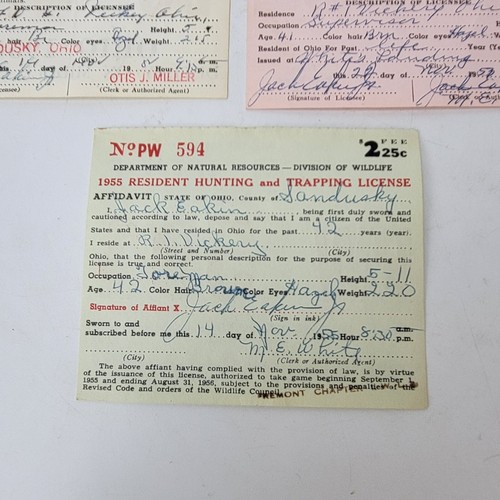 DESCRIPTION OF LICENSEE
Color eyes Weight 215
SANDUSKY, OHIO
OTIS J. MILLER
(Clerk or Authorized Agent)
DESCRIPTION OF LICENSEE
Residence R #1 Vickery
Occupation Supervisor
Age 41 Color hair Brn Color eyes Hazel
Resident of Ohio For Past Life
Issued at
(City)
Jack Eakin Jr
(Signature of Licensee)
(Clerk or Authorized Agent)
No PW 594
$2 FEE 25c
DEPARTMENT OF NATURAL RESOURCES — DIVISION OF WILDLIFE
1955 RESIDENT HUNTING and TRAPPING LICENSE
AFFIDAVIT STATE OF OHIO, County of Sandusky
I, Jack Eakin, being first duly sworn and
cautioned according to law, depose and say that I am a citizen of the United
States and that I have resided in Ohio for the past 42 years (year).
I reside at R. 1. Vickery
(Street and Number) (City)
Ohio, that the following personal description for the purpose of securing this
license is true and correct.
Occupation Foreman Height 5-11
Age 42 Color Hair Brown Color Eyes Hazel Weight 220
Signature of Affiant X Jack Eakin Jr
(Sign in ink)
Sworn to and a.m.
subscribed before me this 14 day of Nov 1955 8:30 p.m.
M. E. White
(City) (Clerk or Authorized Agent)
The above affiant having complied with the provision of law, is by virtue
of the issuance of this license, authorized to take game beginning September 1,
1955 and ending August 31, 1956, subject to the provisions and penalties of the
Revised Code and orders of the Wildlife Council.
FREMONT CHAPTER